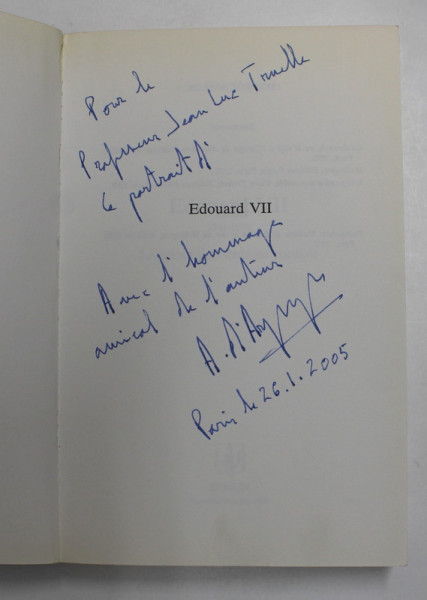 Pour le
Professeur Jean Luc Truelle
Ce portrait d'
Edouard VII
Avec l'hommage
amical de l'auteur
Paris le 26.1.2005